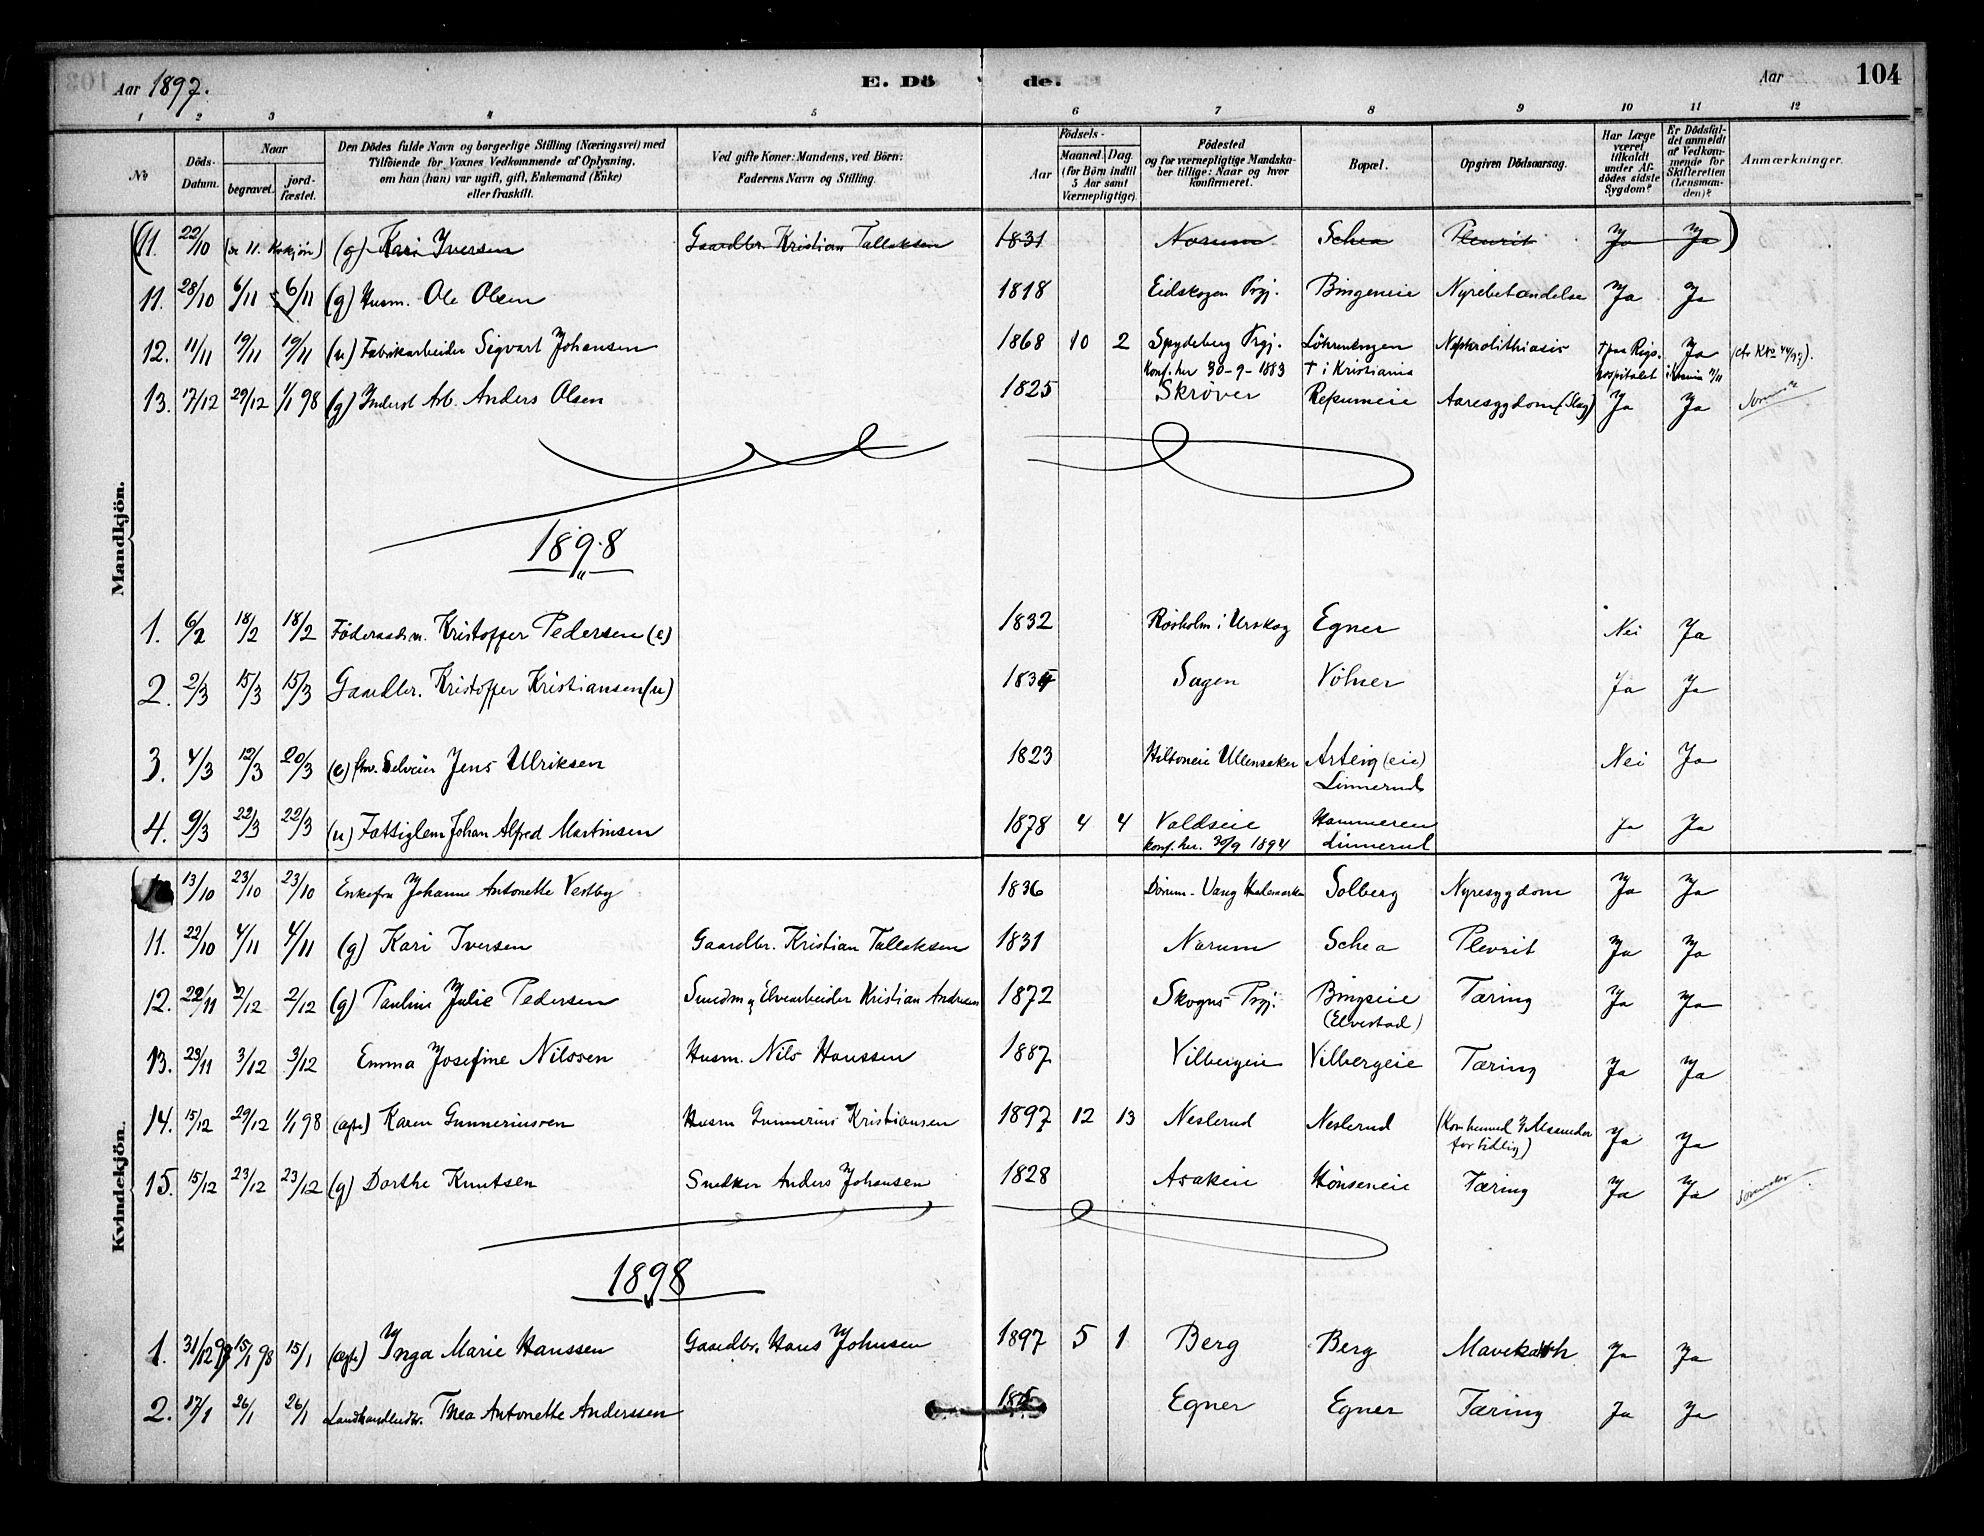 Aar 1897. E. Dö de. Aar 104
1 2 3 4 5 6 7 8 9 10 11 12
No
Döds-Datum.
Naar
begravet.
jordfæstet.
Den Dödes fulde Navn og borgerlige Stilling (Næringsvei) med
Tilföiende for Voxnes Vedkommende af Oplysning,
om han (hun) var ugift, gift, Enkemand (Enke)
eller fraskilt.
Ved gifte Koner: Mandens, ved Börn:
Faderens Navn og Stilling.
Födsels-
Aar
Maaned. Dag
(for Börn indtil
5 Aar samt
Værnepligtige).
Födested
og for værnepligtige Mandska-
ber tillige: Naar og hvor
konfirmeret.
Bopæl.
Opgiven Dödsaarsag.
Har Læge
været
tilkaldt
under Af-
dödes sidste
Sygdom?
Er Dödsfal-
det anmeldt
af Vedkom-
mende for
Skifteretten
(Lensman-
den)?
Anmærkninger.
Mandkjön.
(11. 22/10 (se 11. Kvkjön) (g) Kari Iversen Gaardbr. Kristian Tallaksen 1831 Narum Schea Pleurit Ja Ja)
11. 28/10 6/11 6/11 (g) Husm. Ole Olsen 1818 Eidskogen Prgj. Bingeneie Nyrebetændelse Ja Ja
12. 11/11 19/11 19/11 (u) Fabrikarbeider Sigvart Johansen 1868 10 2 Spydeberg Prgj. Nephrolithiasis † paa Rigs- Ja
konf. her 30-9-1883 † i Kristiania hospitalet
13. 17/12 29/12 1/1 98 (g) Inderst Arb. Anders Olsen 1825 Skrøver Aaresygdom (Slag) Ja Ja
1898
1. 6/2 18/2 18/2 Föderaadsm. Kristoffer Pedersen (e) 1832 Rösholm i Urskog Egner Nei Ja
2. 2/3 15/3 15/3 Gaardbr. Kristoffer Kristiansen (u) Sagen Völner Ja Ja
3. 4/3 12/3 20/3 (e) fhv. Selveier Jens Ulriksen 1823 Hiltoneie Ullensaker Arteig (eie) Nei Ja
Linnerud
4. 9/3 22/3 22/3 (u) Fattiglem Johan Alfred Martinsen 1878 4 4 Valdseie Hammeren Ja Ja
konf. her. 30/9 1894 Linnerud
Kvindekjön.
13/10 23/10 23/10 Enkefru Johanne Antonette Vestby 1836 Dørum - Vang Hedemarken Solberg Nyresygdom Ja Ja
11. 22/10 4/11 4/11 (g) Kari Iversen Gaardbr. Kristian Tallaksen 1831 Narum Schea Plevrit Ja Ja
12. 22/11 2/12 2/12 (g) Pauline Julie Pedersen Smedm. & Elvearbeider Kristian Andersen 1872 Skogns Prgj. Bingseie Tæring Ja Ja
(Elvestad)
13. 23/11 3/12 3/12 Emma Josefine Nilssen Husm. Nils Hanssen 1887 Vilbergeie Vilbergeie Tæring Ja Ja
14. 15/12 29/12 1/1 98 (ægte) Karen Gunneriusen Husm Gunnerius Kristiansen 1897 12 13 Neslerud Neslerud (Kom henved 3 Maaneder Ja Ja
for tidlig)
15. 15/12 23/12 23/12 (g) Dorthe Knutsen Snedker Anders Johansen 1828 Asakeie Hönseneie Tæring Ja Ja
1898
1. 31/12 97 15/1 98 15/1 (ægte) Inga Marie Hanssen Gaardbr. Hans Johnsen 1897 5 1 Berg Berg Mavekatarrh Ja Ja
2. 17/1 26/1 26/1 Landhandlerske. Thea Antonette Anderssen Egner Egner Tæring Ja Ja